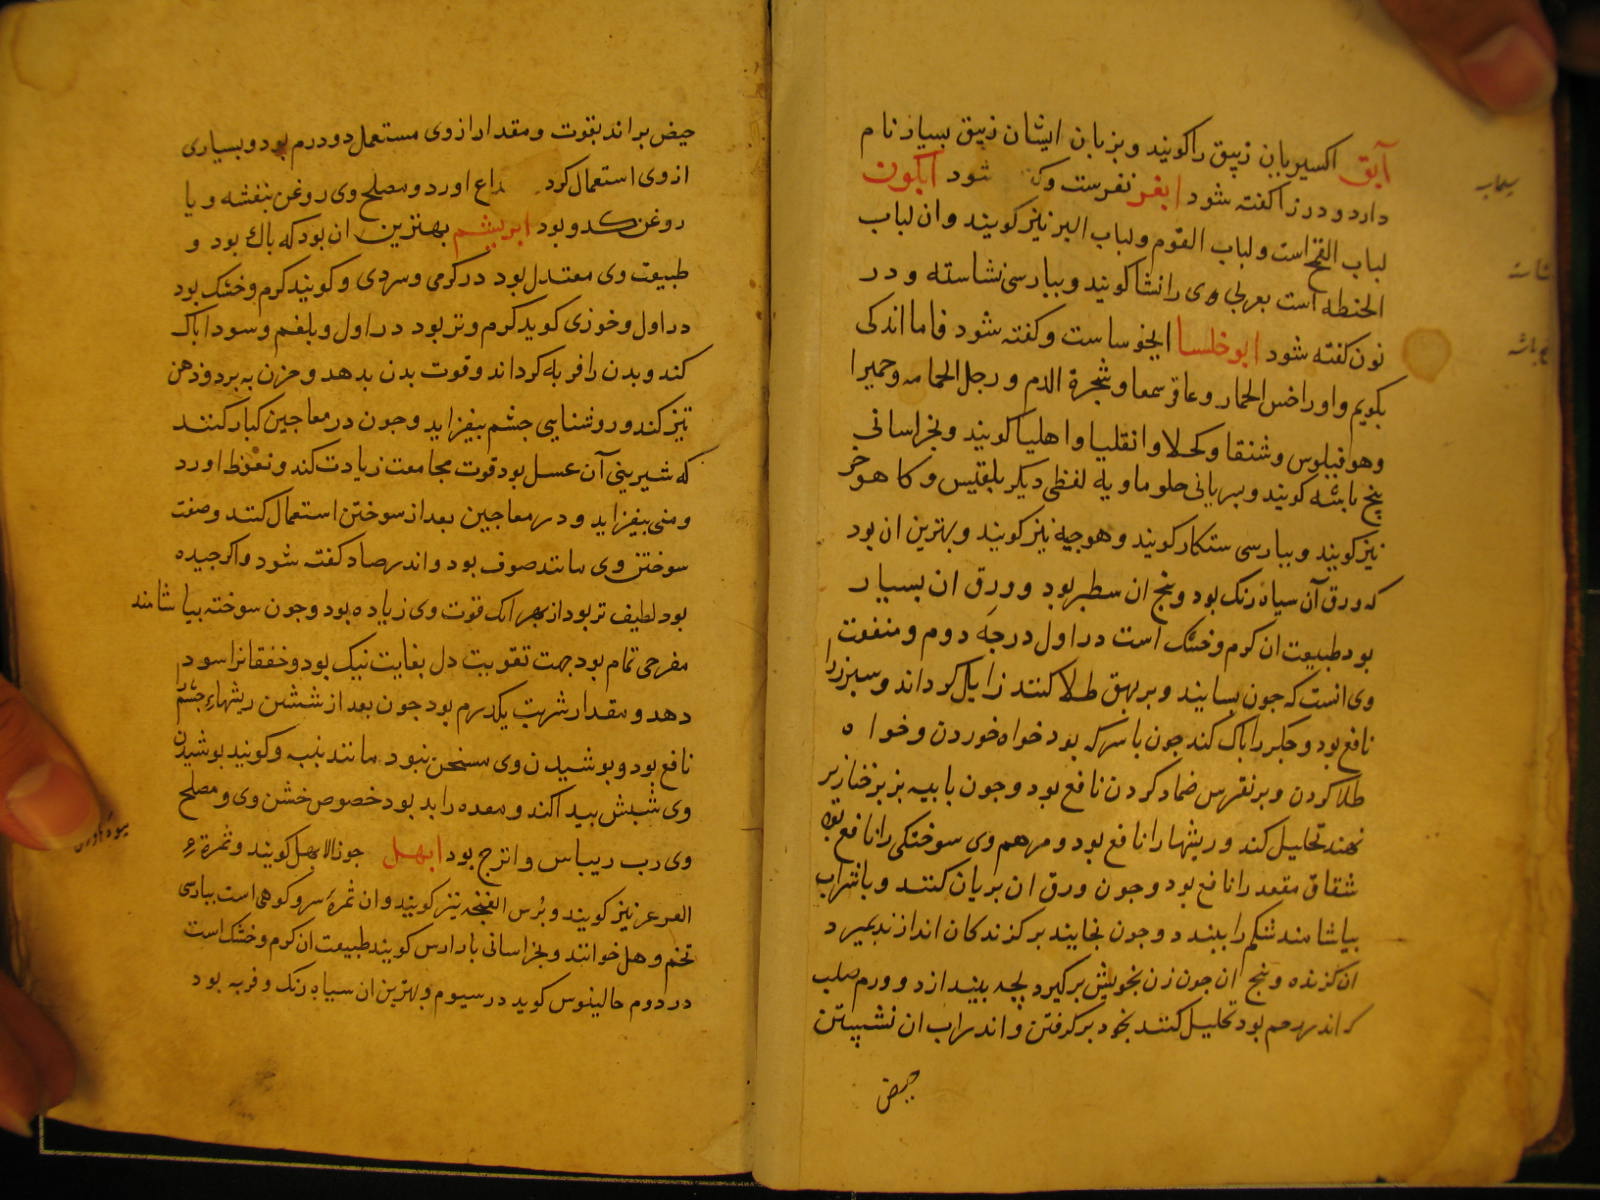 آبق اکسیریان زیبق را کویند و بزبان ایشان زیبق بسیار نام
دارد و در زا کفته شود ابقر نقرست وکفته شود ابکون
لباب القمح است و لباب القوم و لباب البر نیز کویند و ان لباب
الحنطه است بعربی وی را نشا کویند و بپارسی نشاسته و در
نون کفته شود ابوخلسا انجوسا است و کفته شود فاما اندکی
بکویم و او را خس الحمار و عاقر شمعا و شجرة الدم و رجل الحمامه و حمیرا
وهو فیلوس و شنقار و کحلا و انقلیا و اهلیا کویند و بخراسانی
پنج باشه کویند و بسریانی حلوما و به لفظی دیکر بلقیس و کا هوخر
نیز کویند و بپارسی ستکار کویند و هوجیه نیز کویند و بهترین ان بود
که ورق آن سیاه رنک بود و بنج ان سطبر بود و ورق ان بسیار
بود طبیعت ان کرم و خشک است در اول درجه دوم و منفعت
وی انست که جون بسایند و بر بهق طلا کنند زایل کرداند و سبرز را
نافع بود و جکر را پاک کند جون با سرکه بود خواه خوردن و خواه
طلا کردن و بر نقرس ضماد کردن نافع بود و جون با پیه بز بر خنازیر
نهند تحلیل کند و ریشها را نافع بود و مرهم وی سوختکی را نافع بود
شقاق مقعد را نافع بود و جون ورق ان بریان کنند و با شراب
بیاشامند شکم را ببندد و جون بخایند بر کزندکان اندازند بمیرد
ان کزنده و بنج ان جون زن بخویش برکیرد بچه بیندازد و ورم صلب
که اندر رحم بود تحلیل کنند بخود برکرفتن و اندر اب ان نشستن
حیض
سیماب
نشاسته
حیض براند بقوت و مقدار از وی مستعمل دو درم بود و بسیاری
از وی استعمال کردن صداع اورد و مصلح وی روغن بنفشه و یا
روغن کدو بود ابریشم بهترین ان بود که پاک بود و
طبیعت وی معتدل بود در کرمی و سردی و کویند کرم و خشک بود
در اول و خوزی کوید کرم و تر بود در اول و بلغم و سودا پاک
کند و بدن را فربه کرداند و قوت بدن بدهد و حزن به برد و ذهن
تیز کند و روشنایی جشم بیفزاید و جون در معاجین کبار کنند
که شیرینی آن عسل بود قوت مجامعت زیادت کند و نعوظ اورد
و منی بیفزاید و در معاجین بعد از سوختن استعمال کنند و صفت
سوختن وی مانند صوف بود و اندر صاد کفته شود و اکر جیده
بود لطیف تر بود از بهر انک قوت وی زیاده بود و جون سوخته بیاشامند
مفرحی تمام بود جهت تقویت دل بغایت نیک بود و خفقانرا سود
دهد و مقدار شربت یکدرم بود جون بعد از شستن ریشهاء جشم
نافع بود و پوشیدن وی مسخن نبود مانند پنبه و کویند پوشیدن
وی شپش پیدا کند و معده را بد بود خصوص خشن وی و مصلح
وی رب ریباس و اترج بود ابهل جوز الابهل کویند و ثمره
العرعر نیز کویند و برس الغنجه نیز کویند و ان ثمره سرو کوهی است بپارسی
تخم وهل خوانند و بخراسانی بارارس کویند طبیعت ان کرم و خشک است
در دوم جالینوس کوید در سیوم و بهترین ان سیاه رنک و فربه بود